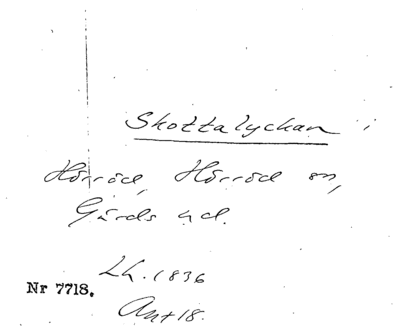 Skottalyckan
Hörröd, Hörröd sn,
Gärds hd.
Lh. 1836
Nr 7718.
Akt 18.